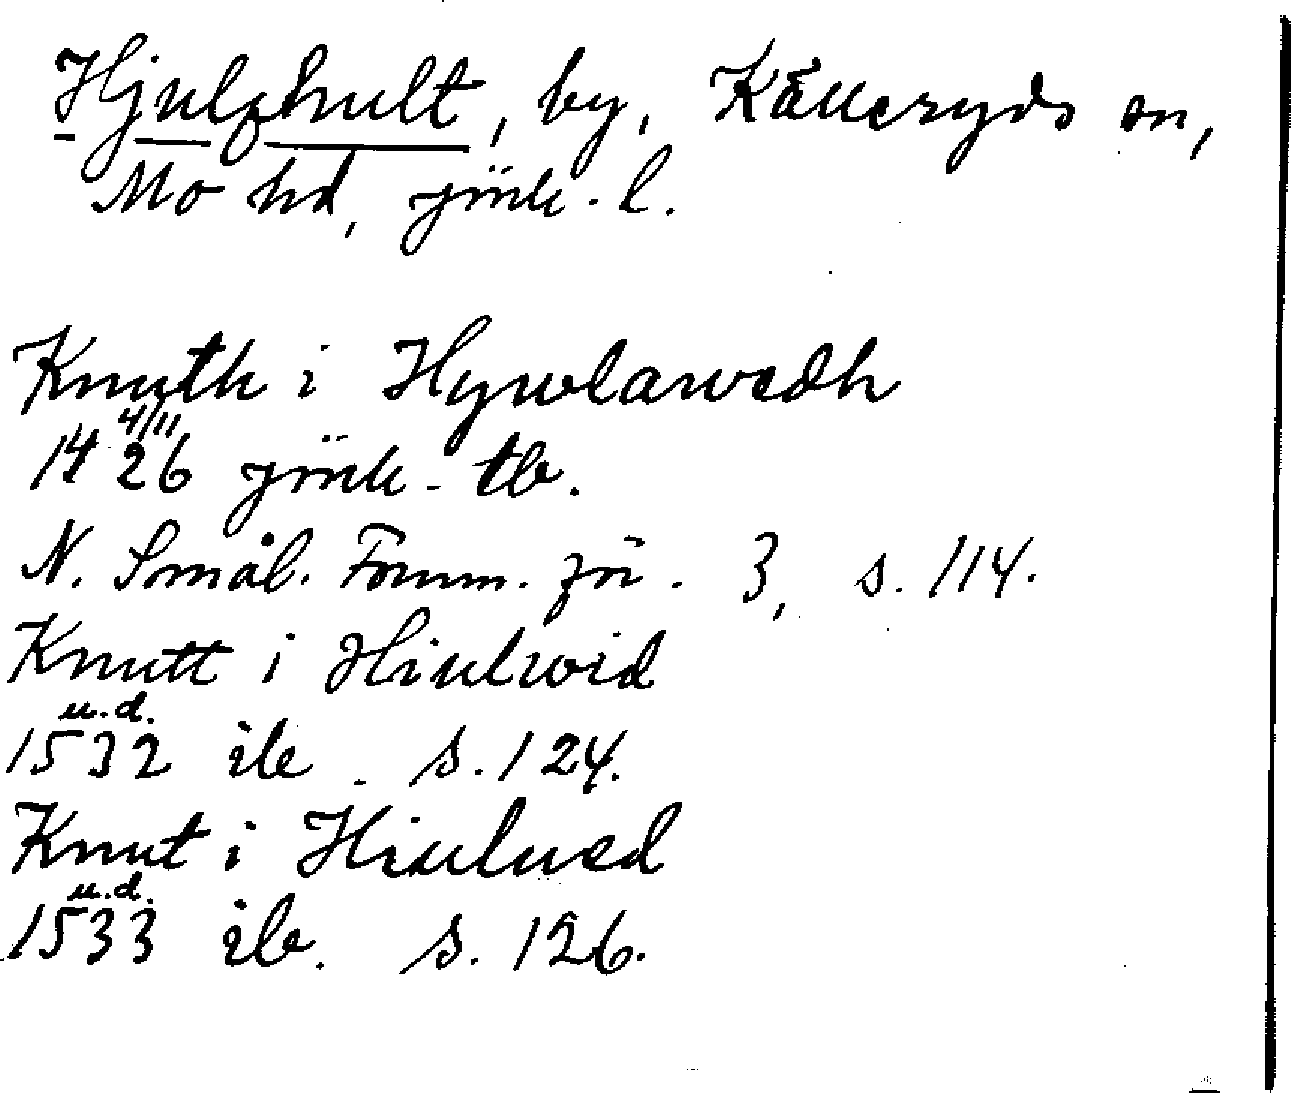 Hjulfhult, by, Kålleryds sn,
Mo hd, Jönk. l.
Knuth i Hywlawedh
14 4/11 26 Jönk. tb.
N. Smål. Fornm. för. 3, s. 114.
Knutt i Hiulwid
u.d.
1532 ib. s. 124.
Knut i Hiulued
u.d.
1533 ib. s. 126.